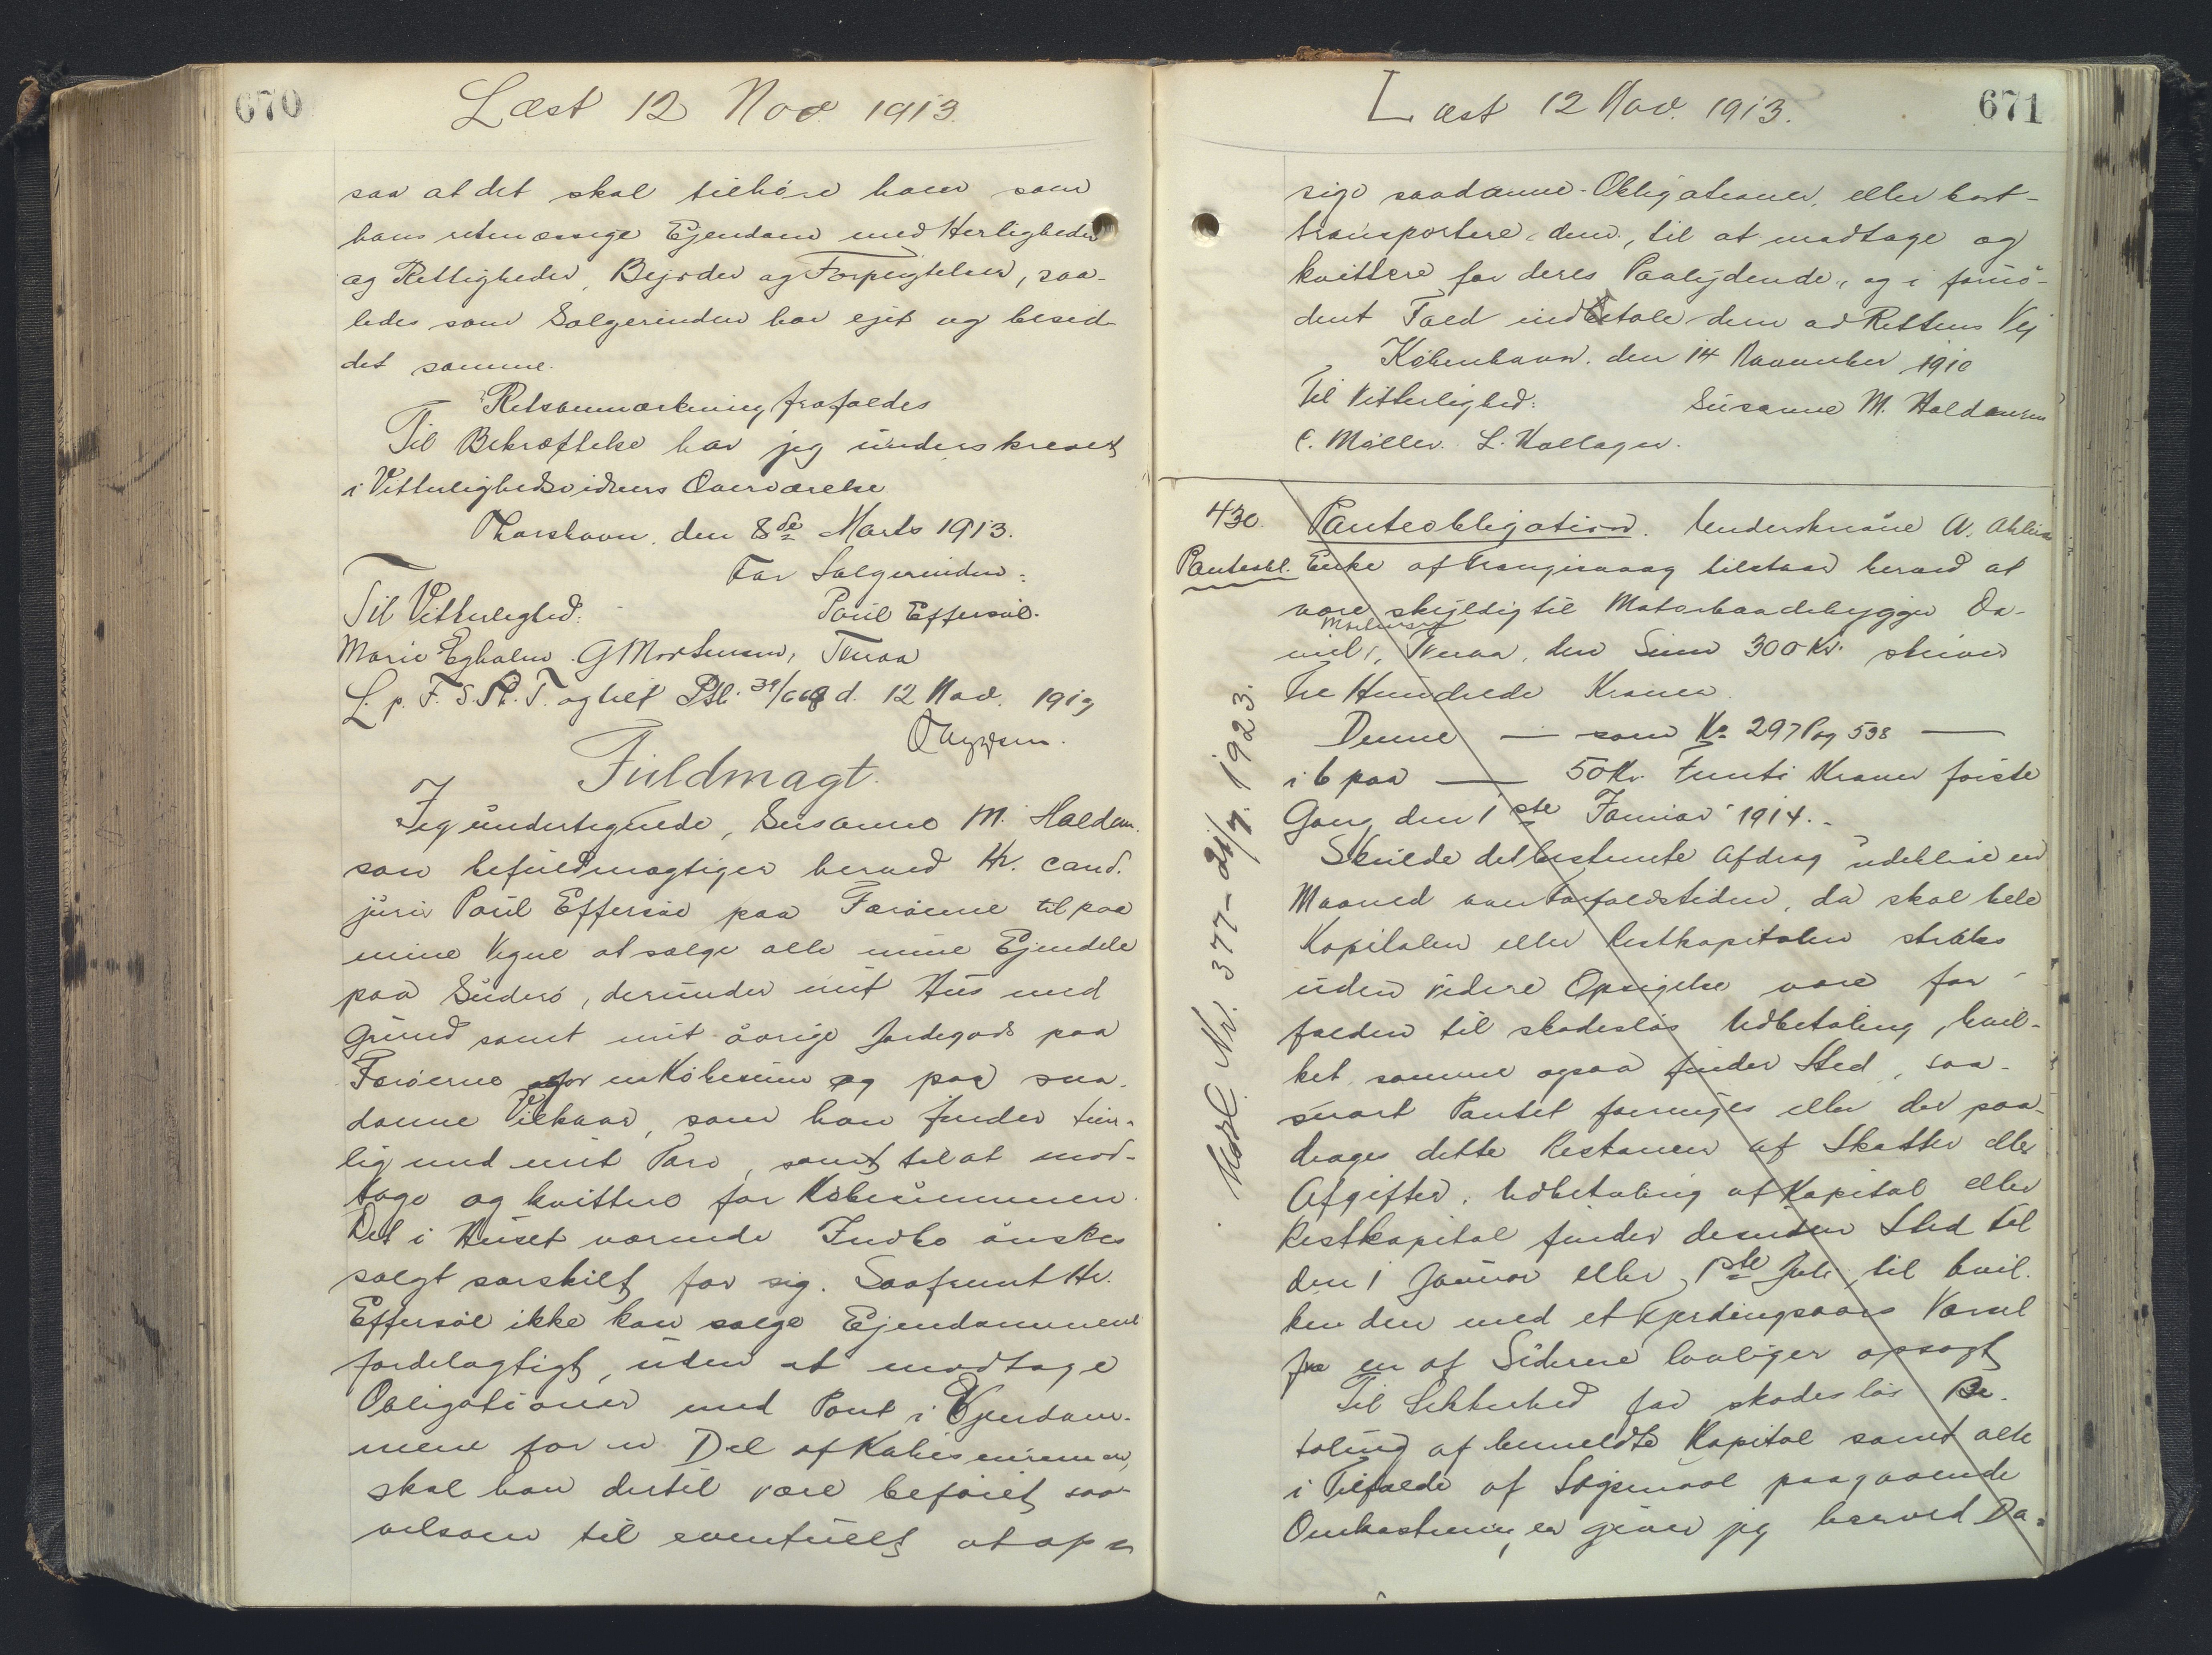 670
Læst 12 Nov. 1913.
saa at det skal tilhøre ham som
hans retmæssige Ejendom med Herligheder
og Rettigheder, Byrder og Forpligtelser, saa-
ledes som Sælgerinden har ejet og besid-
det samme.
Retsanmærkning frafaldes
Til Bekræftelse har jeg underskrevet
i Vitterlighedsvidners Overværelse
Thorshavn, den 8de Marts 1913.
For Sælgerinden:
Til Vitterlighed: Poul Effersøe.
Marie Egholm. G Mortensen, Tveraa
L. p. F. S. Pt. T. og til Ptl. d. 12 Nov. 1913
Fuldmagt.
Jeg undertegnede, Susanne M. Haldan-
son befuldmægtiger herved Hr. cand.
juris Poul Effersøe paa Færøerne til paa
mine Vegne at sælge alle mine Ejendele
paa Suderø, derunder mit Hus med
Grund samt mit øvrige Jordegods paa
Færøerne for en Købesum og paa saa-
danne Vilkaar, som han finder tien-
lig med mit Tarv, samt til at mod-
tage og kvittere for Købesummen.
Det i Huset værende Indbo ønskes
solgt særskilt for sig. Saafremt Hr.
Effersøe ikke kan sælge Ejendommene
fordelagtigt, uden at modtage
Obligationer med Pant i Ejendom-
mene for en Del af Købesummen,
skal han dertil være beføiet saa-
velsom til eventuelt at op-
Læst 12 Nov. 1913.
671
sige saadanne Obligationer, eller bort-
transportere dem, til at modtage og
kvittere for deres Paalydende, og i fornø-
dent Fald indtale dem ad Rettens Vej
København. den 14 November 1910
Til Vitterlighed: Susanne M. Haldansen
C. Møller. L. Hallager.
430. Panteobligation. Underskrevne
Panteobl. Enke af Trangisvaag tilstaar herved at
være skyldig til Motorbaadebygger Da-
Mortensen
niel, Tveraa, den Sum 300 Kr. skriver
Tre Hundrede Kroner.
Denne — som No 297 Pag 538 —
i 6 paa — 50 Kr. Femti Kroner første
Gang den 1ste Januar 1914.
Skulde det bestemte Afdrag udeblive en
Maaned over Forfaldstiden, da skal hele
Kapitalen eller Restkapitalen straks
uden videre Opsigelse være for-
falden til skadesløs Udbetaling, hvil-
ket samme ogsaa finder Sted, saa-
snart Pantet forringes eller der paa-
drages dette Restancer af Skatter eller
Afgifter. Udbetaling af Kapital eller
Restkapital finder desuden Sted til
den 1 Januar eller 1ste Juli til hvil-
ken den med et Fjerdingsaars Varsel
fra en af Siderne lovliger opsagt
Til Sikkerhed for skadesløs Be-
taling af bemeldte Kapital samt alle
i Tilfælde af Søgsmaal paagaaende
Omkostninger giver jeg herved Da-
Udsl. Nr. 377 - 21/7. 1923.